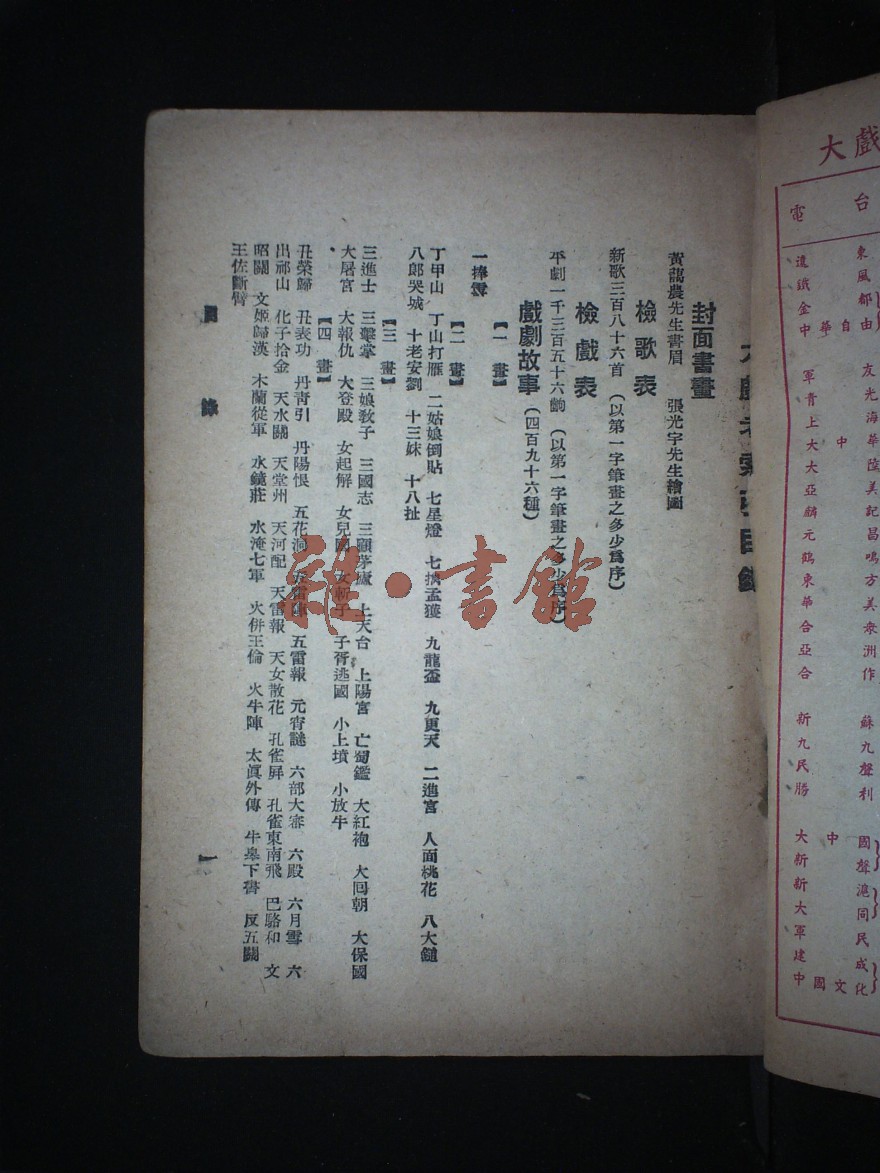 封面書畫
黃藹農先生書眉　張光宇先生繪圖
檢歌表
新歌三百八十六首（以第一字筆畫之多少爲序）
檢戲表
平劇一千三百五十六齣（以第一字筆畫之多少爲序）
戲劇故事（四百九十六種）
【一畫】
一捧雪
【二畫】
丁甲山　丁山打雁　二姑娘倒貼　七星燈　七擒孟獲　九龍盃　九更天　二進宮　人面桃花　八大鎚
八郎哭城　十老安劉　十三妹　十八扯
【三畫】
三進士　三擊掌　三娘教子　三國志　三顧茅廬　上天台　上陽宮　亡蜀鑑　大紅袍　大回朝　大保國
大屠宮　大報仇　大登殿　女起解　女兒國　女斬子　子胥逃國　小上墳　小放牛
【四畫】
丑榮歸　丑表功　丹青引　丹陽恨　五花洞　五雷陣　五雷報　元宵謎　六部大審　六殿　六月雪　六
出祁山　化子拾金　天水關　天堂州　天河配　天雷報　天女散花　孔雀屏　孔雀東南飛　巴駱和　文
昭關　文姬歸漢　木蘭從軍　水鏡莊　水淹七軍　火併王倫　火牛陣　太眞外傳　牛皋下書　反五關
王佐斷臂
目錄
一
雜·書館
大戲
電台
東風都由
遠鐵金中
華自
友光海華陸美記昌鳴方美衆洲作
軍青上大大亞麟元鶴東華合亞合
中
蘇九聲利
新九民勝
國聲滬同民成化
中
大新新大軍建中
國文